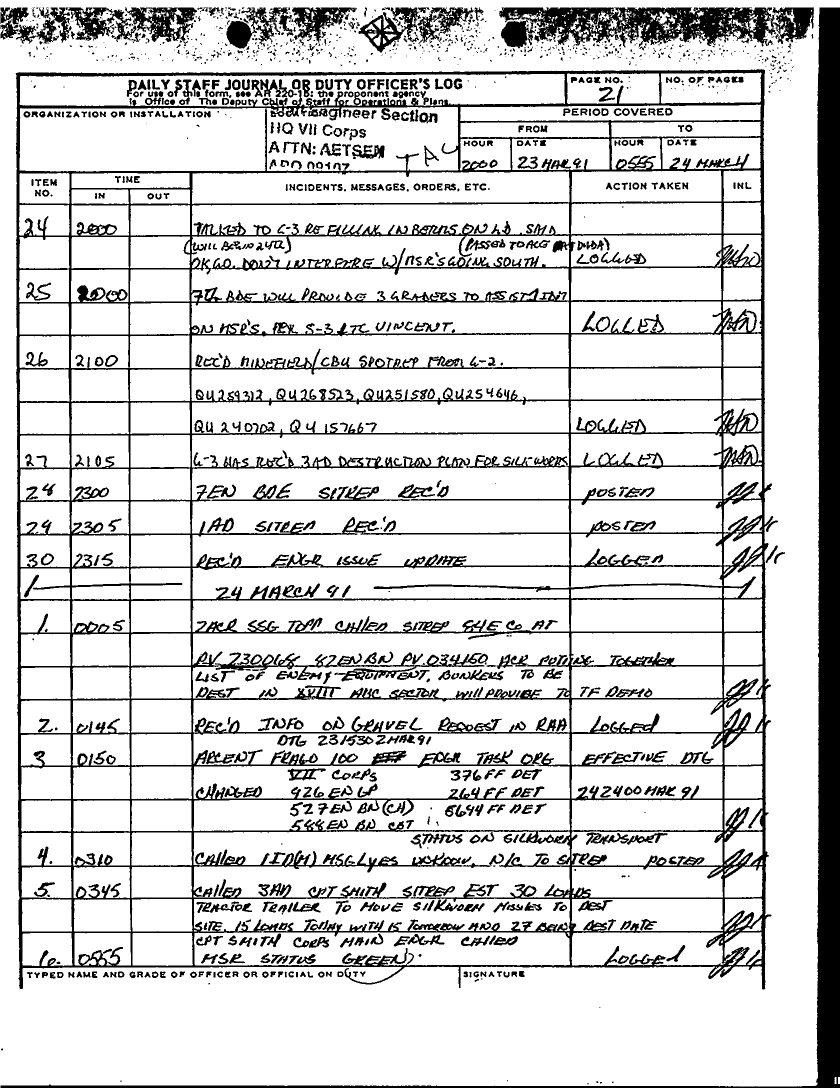 DAILY STAFF JOURNAL OR DUTY OFFICER'S LOG
For use of this form, see AR 220-15; the proponent agency
is Office of The Deputy Chief of Staff for Operations & Plans.
PAGE NO.
21
NO. OF PAGES
ORGANIZATION OR INSTALLATION
Engineer Section
HQ VII Corps
ATTN: AETSEM
TAC
PERIOD COVERED
FROM
TO
HOUR
DATE
HOUR
DATE
2000
23 MAR 91
0555
24 MAR
ITEM NO.
TIME
IN
OUT
INCIDENTS, MESSAGES, ORDERS, ETC.
ACTION TAKEN
INL
24 2000 TALKED TO G-3 RE FILLING IN BERMS ON LD. SAID
(WILL BEGIN 24TH) (PASSED TO ALE
OK GO. DON'T INTERFERE W/MSR'S GOING SOUTH. LOGGED
25 2000 7TH BDE WILL PROVIDE 3 GRADERS TO ASSIST 1ID
ON MSR'S. PER S-3 LTC VINCENT. LOGGED
26 2100 REC'D MINEFIELD/CBU SPOTREP FROM G-2.
QU259312, QU268523, QU251580, QU254646,
QU 240702, QU 157667 LOGGED
27 2105 G-3 HAS REC'D 3AD DESTRUCTION PLAN FOR SILKWORMS LOGGED
28 2300 7EN BDE SITREP REC'D POSTED
29 2305 1AD SITREP REC'D POSTED
30 2315 REC'D ENGR ISSUE UPDATE LOGGED
24 MARCH 91
1. 0005 2ACR SSG TOPP CALLED SITREP 84E CO AT
PV 230068, 82EN BN PV 034150, ACR PUTTING TOGETHER
LIST OF ENEMY EQUIPMENT, BUNKERS TO BE
DEST IN XVIII ABC SECTOR, WILL PROVIDE TO TF DEMO
2. 0145 REC'D INFO ON GRAVEL REQUEST IN RAA LOGGED
DTG 231530Z MAR 91
3 0150 ARCENT FRAGO 100 ENGR TASK ORG EFFECTIVE DTG
VII CORPS 376 FF DET
CHANGED 926 EN GP 264 FF DET 242400 MAR 91
527 EN BN (CH) 5644 FF DET
588 EN BN CBT
STATUS ON SILKWORM TRANSPORT
4. 0310 CALLED 1ID(M) MSG LYES UNKNOW, N/C TO SITREP POSTED
5. 0345 CALLED 3AD CPT SMITH SITREP EST 30 LOADS
TRACTOR TRAILER TO MOVE SILKWORM MISSLES TO DEST
SITE. 15 LOADS TODAY WITH 15 TOMORROW AND 27 BEING DEST DATE
CPT SMITH CORPS MAIN ENGR CALLED
6. 0555 MSR STATUS GREEN. LOGGED
TYPED NAME AND GRADE OF OFFICER OR OFFICIAL ON DUTY
SIGNATURE